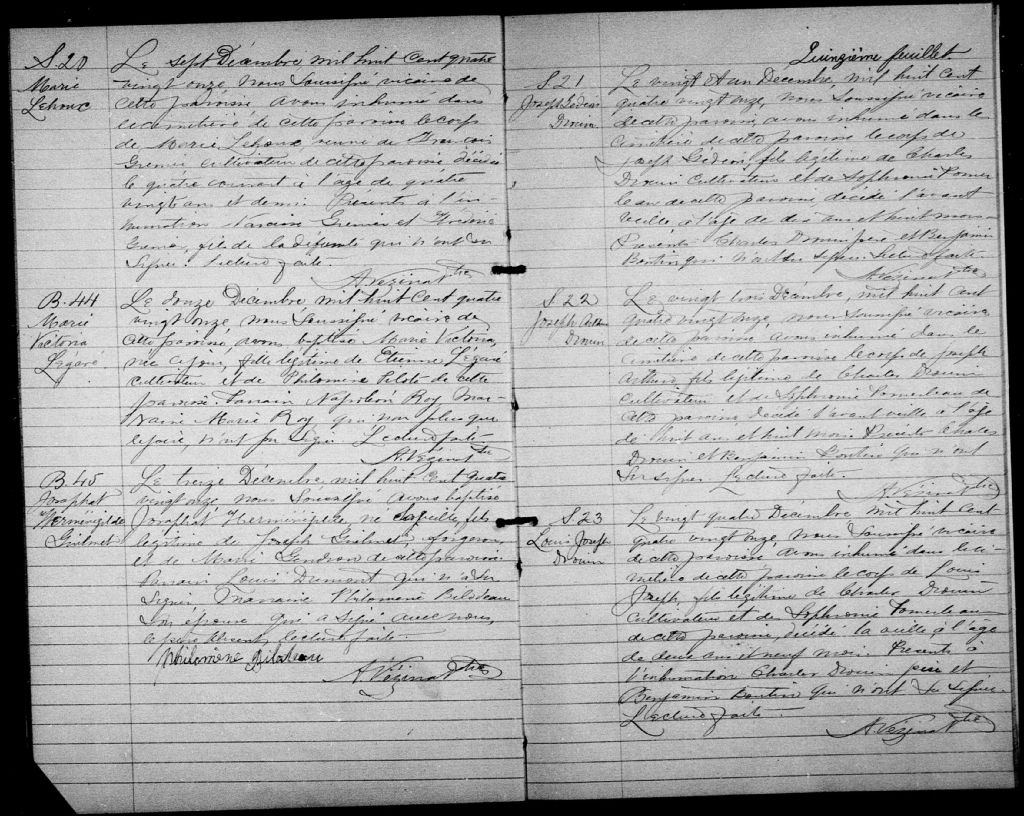 S. 20
Marie
Lehoux
Le sept Décembre mil huit cent quatre
vingt onze, nous soussigné vicaire de
cette paroisse avons inhumé dans
le cimetière de cette paroisse le corps
de Marie Lehoux veuve de François
Grenier cultivateur de cette paroisse décédée
le quatre courant à l'age de quatre
vingt ans et demi. Présents à l'in-
humation Narcisse Grenier et
Grenier, fils de la défunte qui n'ont su
signer. Lecture faite.
A. Vézina Ptre
B. 44
Marie
Victoria
Légaré
Le douze Décembre mil huit cent quatre
vingt onze, nous soussigné vicaire de
cette paroisse, avons baptisé Marie Victoria,
née ce jour, fille légitime de Etienne Légaré
cultivateur et de Philomène Pilote de cette
paroisse. Parrain Napoléon Roy Mar-
raine Marie Roy qui non plus que
le père, n'ont pu signer. Lecture faite
A. Vézina Ptre
B. 45
Josaphat
Herménégilde
Guilmet
Le treize Décembre, mil huit cent quatre
vingt onze, nous soussigné avons baptisé
Josaphat Herménégilde, né la veille, fils
légitime de Joseph Guilmet forgeron,
et de Marie Gendron de cette paroisse
Parrain Louis Drement qui n'a su
signer, Marraine Philomène Bilodeau
son épouse qui a signé avec nous,
le père absent, lecture faite.
Philomène Bilodeau
A. Vézina Ptre
Quinzième feuillet
S. 21
Joseph Gédéon
Drouin
Le vingt et un Décembre, mil huit cent
quatre vingt onze, nous soussigné vicaire
de cette paroisse, avons inhumé dans le
cimetière de cette paroisse le corps de
Joseph Gédéon, fils légitime de Charles
Drouin cultivateur et de Sophronie Pomer
leau de cette paroisse, décédé l'avant
veille à l'age de dix ans et huit mois
Présents Charles Drouin père et Benjamin
Boutin qui n'ont su signer. Lecture faite.
A. Vézina Ptre
S. 22
Joseph Arthur
Drouin
Le vingt trois Décembre, mil huit cent
quatre vingt onze, nous soussigné vicaire
de cette paroisse avons inhumé dans le
cimetière de cette paroisse le corps de Joseph
Arthur, fils légitime de Charles Drouin
cultivateur et de Sophronie Pomerleau de
cette paroisse, décédé l'avant veille à l'age
de huit ans et huit mois. Présents Charles
Drouin et Benjamin Boutin qui n'ont
su signer Lecture faite.
A. Vézina Ptre
S. 23
Louis Joseph
Drouin
Le vingt quatre Décembre mil huit cent
quatre vingt onze, nous soussigné vicaire
de cette paroisse avons inhumé dans le ci-
metière de cette paroisse le corps de Louis
Joseph, fils légitime de Charles Drouin
cultivateur et de Sophronie Pomerleau
de cette paroisse, décédé la veille à l'age
de deux ans et neuf mois. Présents à
l'inhumation Charles Drouin père et
Benjamin Boutin qui n'ont su signer.
Lecture faite.
A. Vézina Ptre